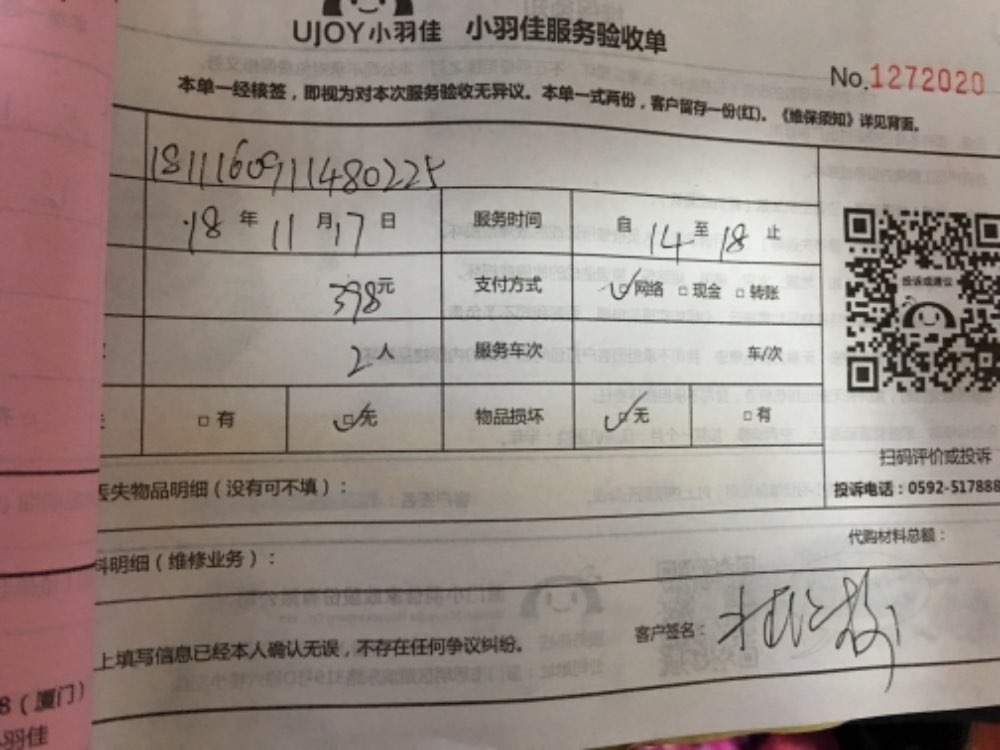 UJOY小羽佳 小羽佳服务验收单
No.1272020
本单一经核签，即视为对本次服务验收无异议。本单一式两份，客户留存一份(红)。《维保须知》详见背面。
1811160911480225
18年11月17日 服务时间 自14至18止
398元 支付方式 ☑网络 □现金 □转账
投诉或建议
2人 服务车次 车/次
□有 ☑无 物品损坏 ☑无 □有
扫码评价或投诉
丢失物品明细（没有可不填）：
投诉电话：0592-517888
代购材料总额：
料明细（维修业务）：
客户签名：
上填写信息已经本人确认无误，不存在任何争议纠纷。
8（厦门）
小羽佳